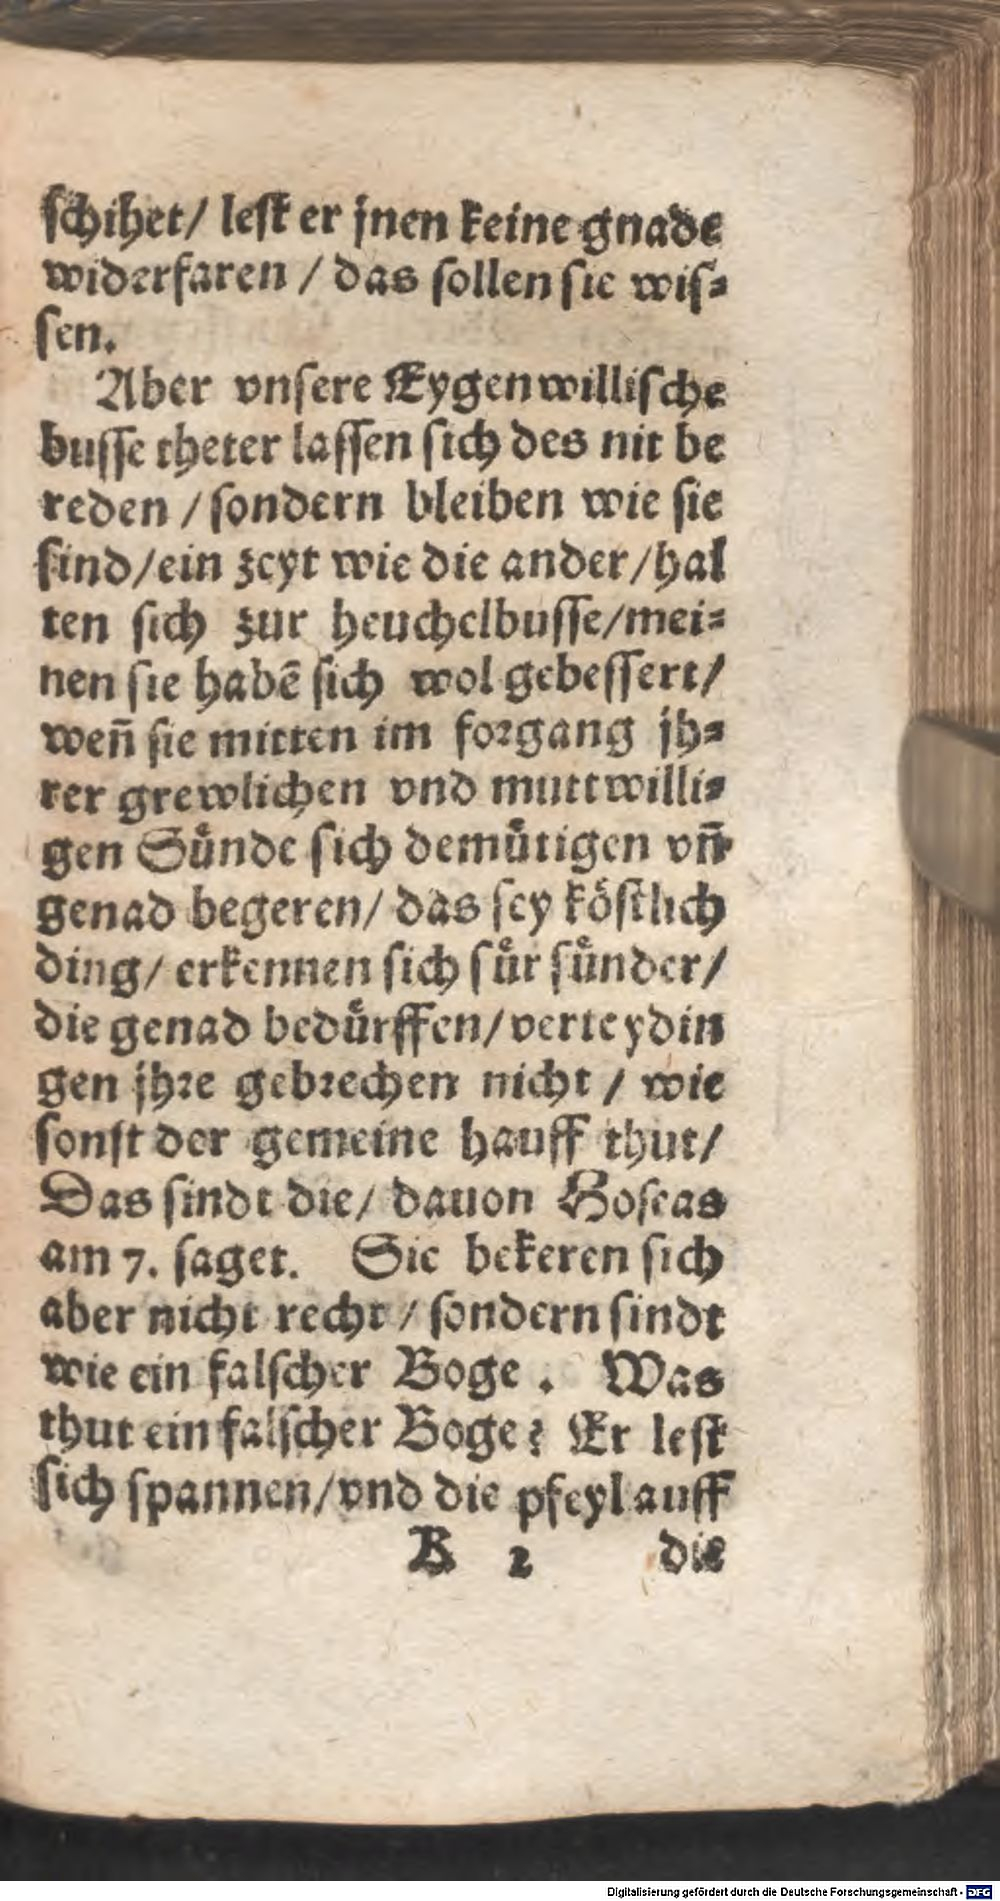 ſchihet/ leſt er jnen keine gnade
widerfaren / das ſollen ſie wiſ⸗
ſen.
Aber vnſere Eygenwilliſche
buſſe theter laſſen ſich des nit be
reden / ſondern bleiben wie ſie
ſind/ein zeyt wie die ander/hal
ten ſich zur heuchelbuſſe/mei⸗
nen ſie habē ſich wol gebeſſert/
weñ ſie mitten im forgang jh⸗
rer grewlichen vnd muttwilli⸗
gen Suͤnde ſich demuͤtigen vñ
genad begeren/ das ſey koͤſtlich
ding/ erkennen ſich fuͤr ſuͤnder/
die genad beduͤrffen/verteydin
gen jhre gebrechen nicht / wie
ſonſt der gemeine hauff thut/
Das ſindt die/ dauon Hoſeas
am 7. ſaget. Sie bekeren ſich
aber nicht recht / ſondern ſindt
wie ein falſcher Boge . Was
thut ein falſcher Boge? Er leſt
ſich ſpannen/vnd die pfeyl auff
B 2 die
Digitalisierung gefördert durch die Deutsche Forschungsgemeinschaft - DFG